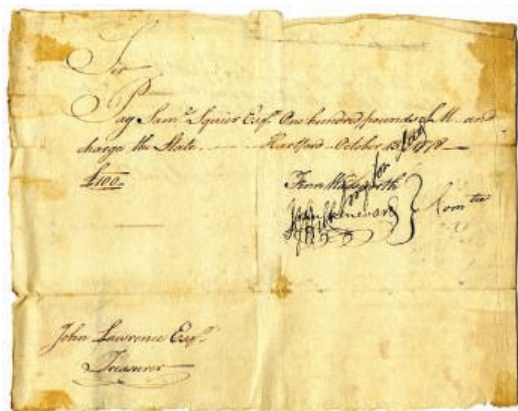 Sir
Pay Samˡ Squier Esqʳ One hundred pounds L M. and
charge the State. Hartford October 13ᵗʰ 1778
£100.
Thom Wadsworth
John Chenevard } Comtee
John Lawrence Esqʳ
Treasurer